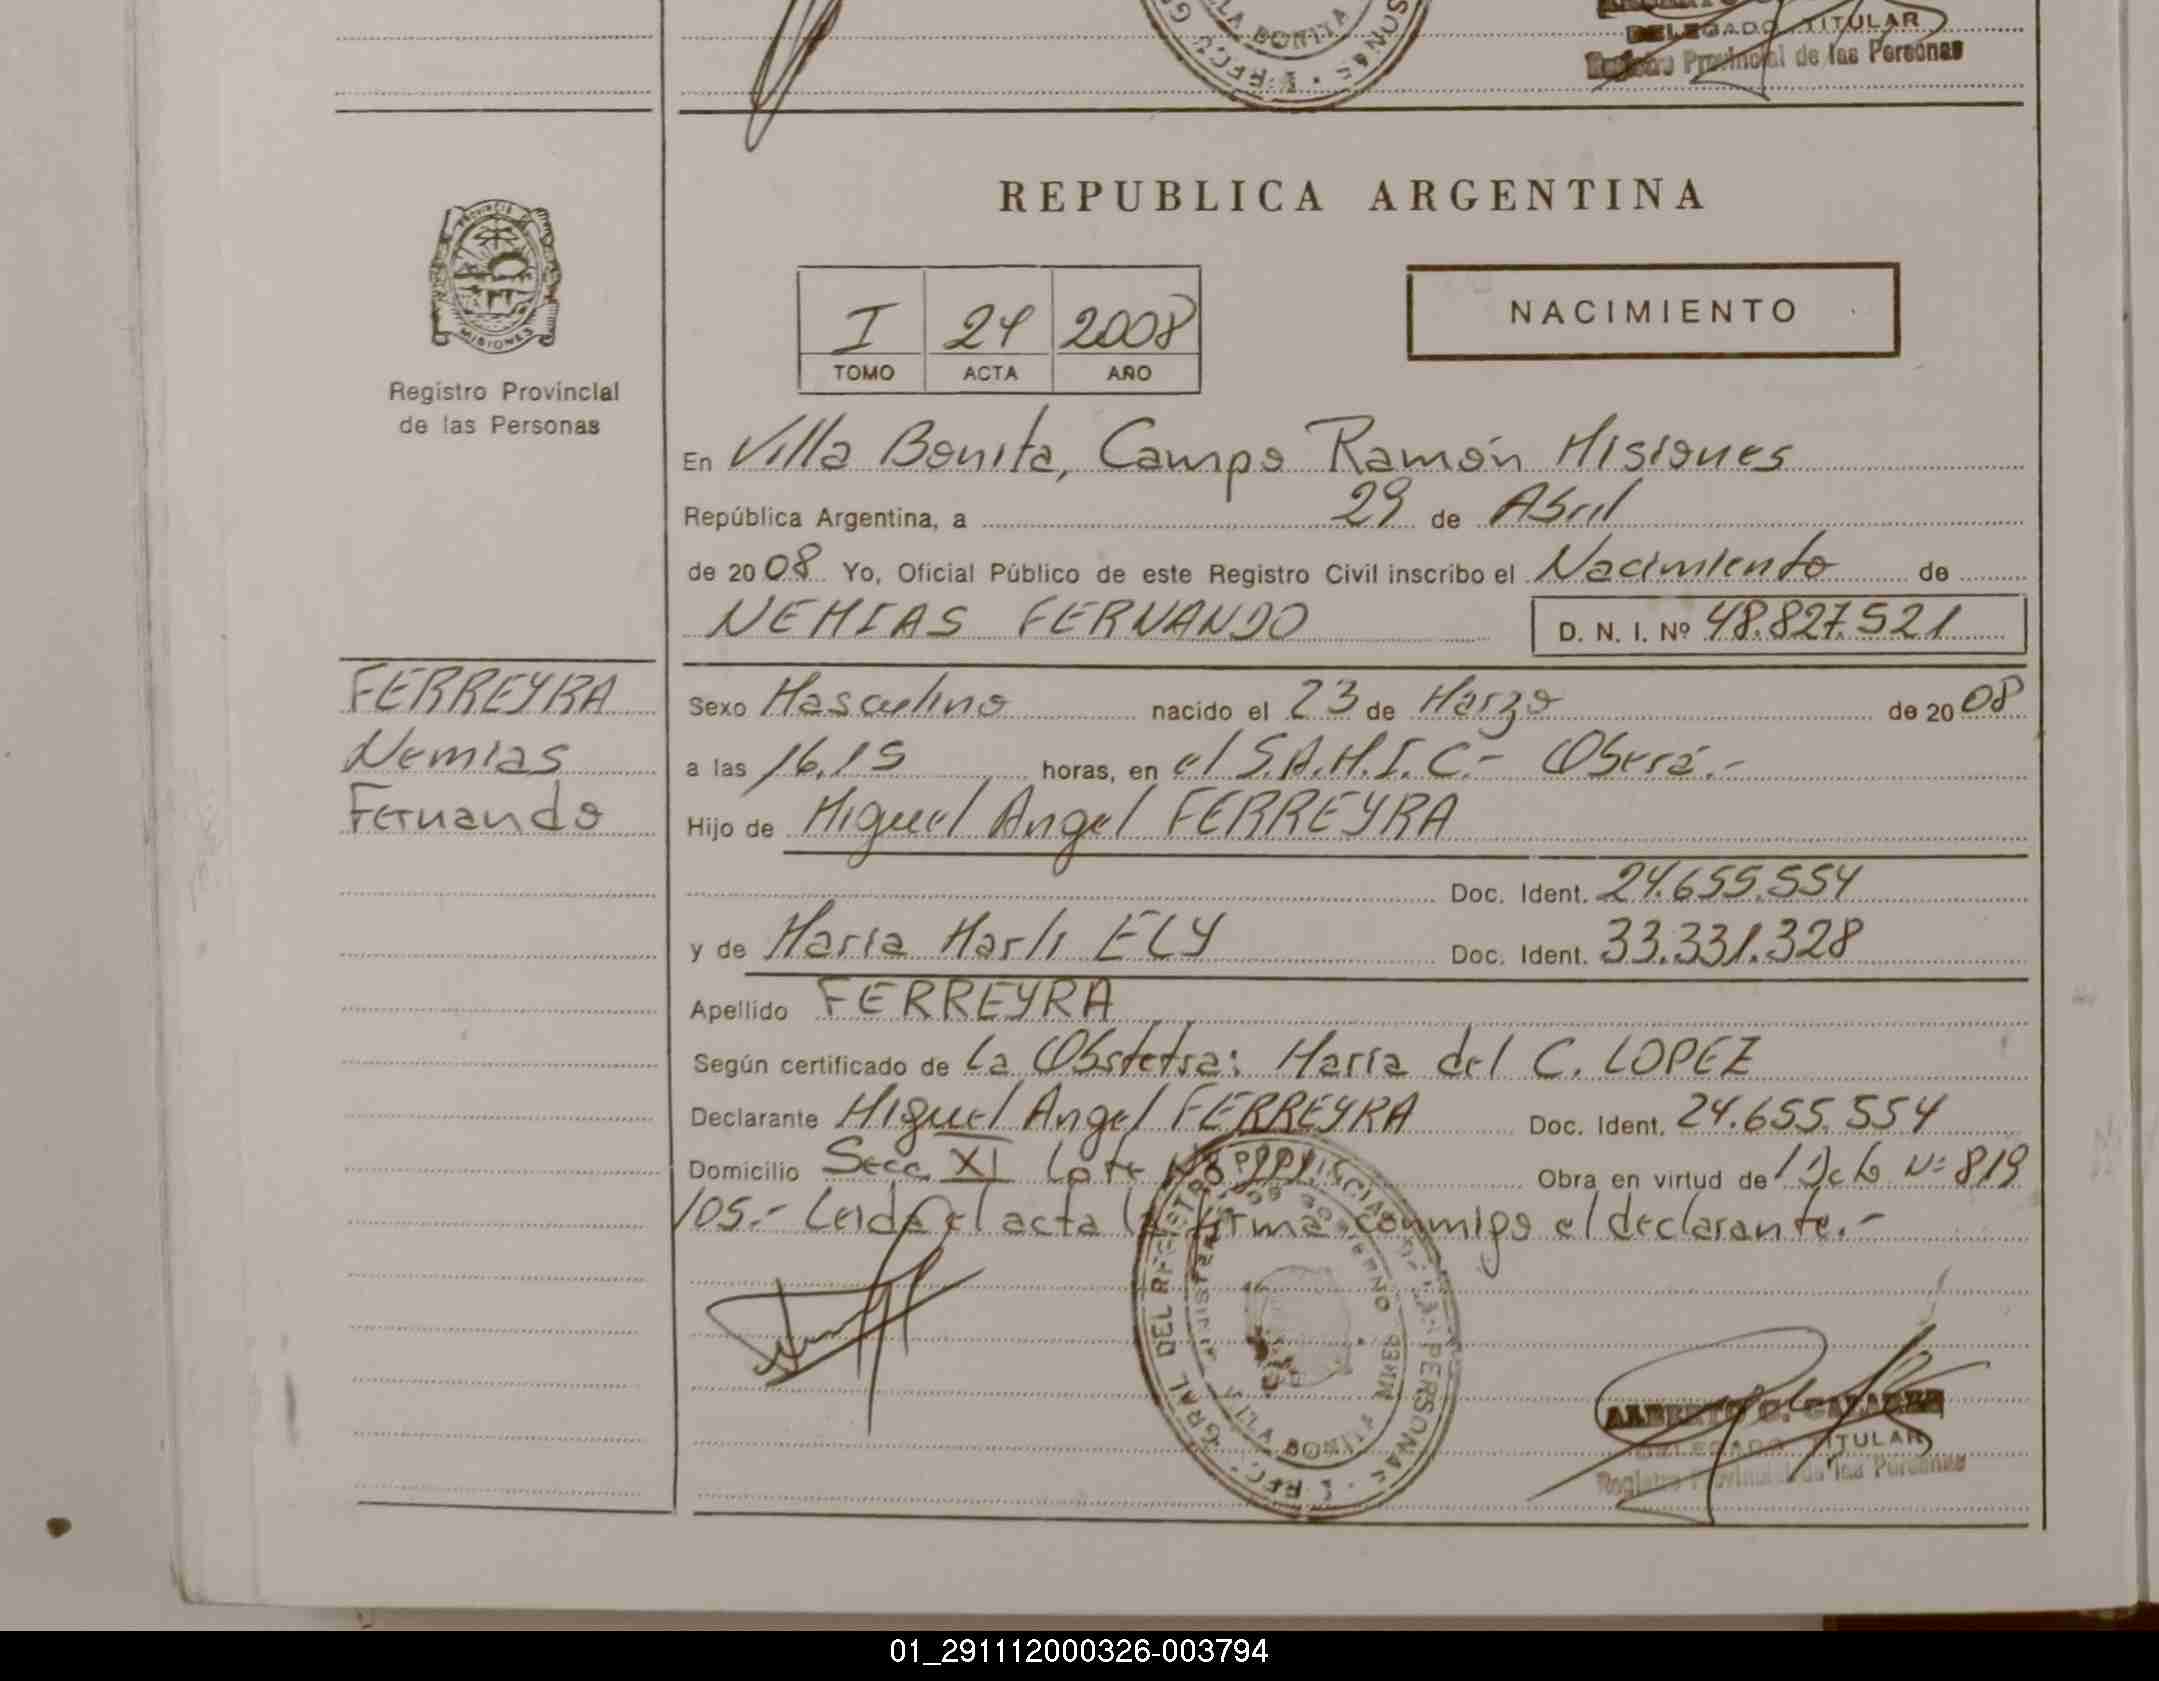 DELEGADO TITULAR
Registro Provincial de las Personas
VILLA BONITA
REPUBLICA ARGENTINA
PROVINCIA
MISIONES
Registro Provincial
de las Personas
I 24 2008
TOMO ACTA AÑO
NACIMIENTO
En Villa Bonita, Campo Ramón Misiones
República Argentina, a 29 de Abril
de 2008 Yo, Oficial Público de este Registro Civil inscribo el Nacimiento de
NEMIAS FERNANDO D. N. I. Nº 48.827.521
FERREYRA
Nemias
Fernando
Sexo Masculino nacido el 23 de Marzo de 2008
a las 16,15 horas, en el S.A.M.I.C.- Oberá.-
Hijo de Miguel Angel FERREYRA
Doc. Ident. 24.655.554
y de María Marli ELY Doc. Ident. 33.331.328
Apellido FERREYRA
Según certificado de La Obstetra: María del C. LOPEZ
Declarante Miguel Angel FERREYRA Doc. Ident. 24.655.554
Domicilio Secc. XI Lote Obra en virtud de Dcto Nº 819
/05.- Leida el acta la firma conmigo el declarante.-
GRAL DEL REGISTRO PROVINCIAL DE LAS PERSONAS
VILLA BONITA
ALBERTO
DELEGADO TITULAR
Registro Provincial de las Personas
01_291112000326-003794